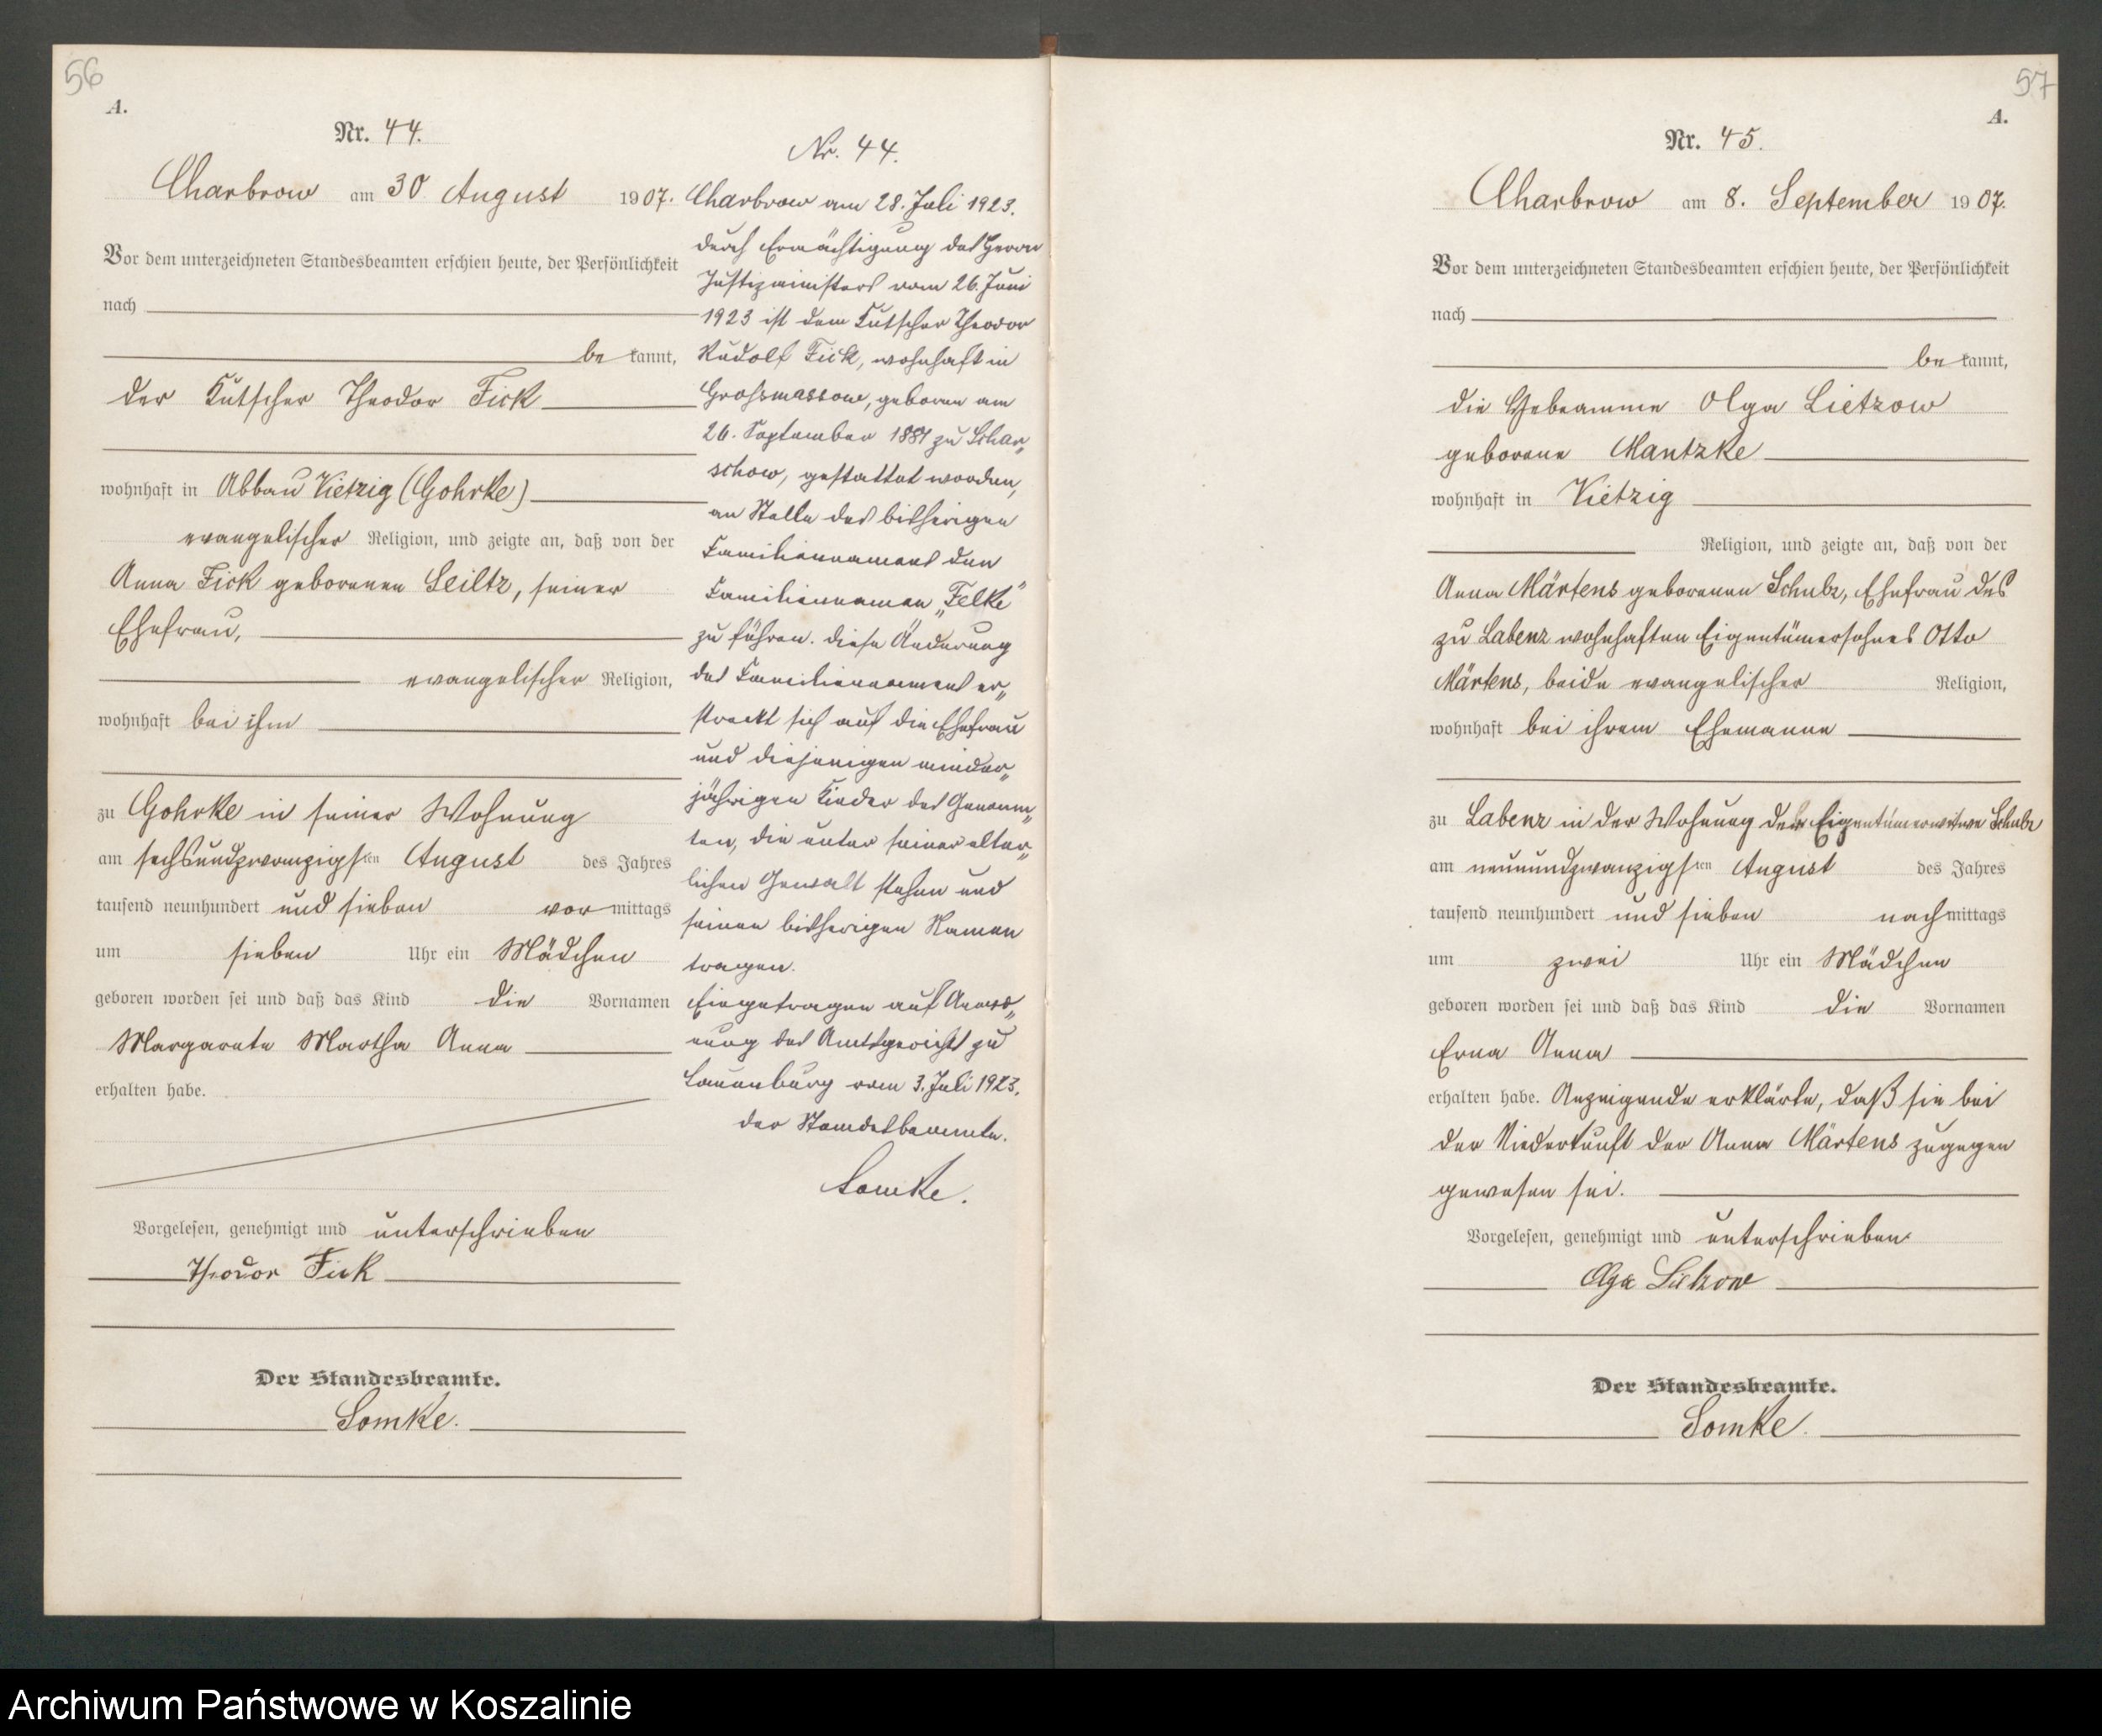 56
A.
Nr. 44.
Charbrow am 30 August 1907.
Vor dem unterzeichneten Standesbeamten erschien heute, der Persönlichkeit
nach
be kannt,
der Kutscher Theodor Fick
wohnhaft in Abbau Vietzig (Gohrke)
evangelischer Religion, und zeigte an, daß von der
Anna Fick geborenen Seiltz, seiner
Ehefrau,
evangelischer Religion,
wohnhaft bei ihm
zu Gohrke in seiner Wohnung
am sechsundzwanzigsten August des Jahres
tausend neunhundert und sieben vormittags
um sieben Uhr ein Mädchen
geboren worden sei und daß das Kind die Vornamen
Margarete Martha Anna
erhalten habe.
Vorgelesen, genehmigt und unterschrieben
Theodor Fick
Der Standesbeamte.
Somke.
Nr. 44.
Charbrow am 28. Juli 1923.
Durch Ermächtigung des Herrn
Justizministers vom 26. Juni
1923 ist dem Kutscher Theodor
Rudolf Fick, wohnhaft in
Groß­massow, geboren am
26. September 1881 zu Schar„
schow, gestattet worden,
an Stelle des bisherigen
Familiennamens den
Familiennamen „Felke“
zu führen. Diese Änderung
des Familiennamens er„
streckt sich auf die Ehefrau
und diejenigen minder„
jährigen Kinder des Genann„
ten, die unter seiner elter„
lichen Gewalt stehen und
seinen bisherigen Namen
tragen.
Eingetragen auf Anord„
nung des Amtsgerichts zu
Lauenburg vom 3. Juli 1923.
Der Standesbeamte.
Somke.
57
A.
Nr. 45.
Charbrow am 8. September 1907.
Vor dem unterzeichneten Standesbeamten erschien heute, der Persönlichkeit
nach
be kannt,
die Hebeamme Olga Lietzow
geborene Mantzke
wohnhaft in Vietzig
Religion, und zeigte an, daß von der
Anna Märtens geborenen Schulz, Ehefrau des
zu Labenz wohnhaften Eigentümersohnes Otto
Märtens, beide evangelischer Religion,
wohnhaft bei ihrem Ehemanne
zu Labenz in der Wohnung der Eigentümerwitwe Schulz
am neunundzwanzigsten August des Jahres
tausend neunhundert und sieben nachmittags
um zwei Uhr ein Mädchen
geboren worden sei und daß das Kind die Vornamen
Erna Anna
erhalten habe. Anzeigende erklärte, daß sie bei
der Niederkunft der Anna Märtens zugegen
gewesen sei.
Vorgelesen, genehmigt und unterschrieben
Olga Lietzow
Der Standesbeamte.
Somke.
Archiwum Państwowe w Koszalinie